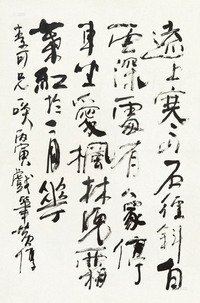 遠上寒山石徑斜白
雲深處有人家停
車坐愛楓林晚霜
葉紅於二月華
兄 丙寅戲筆